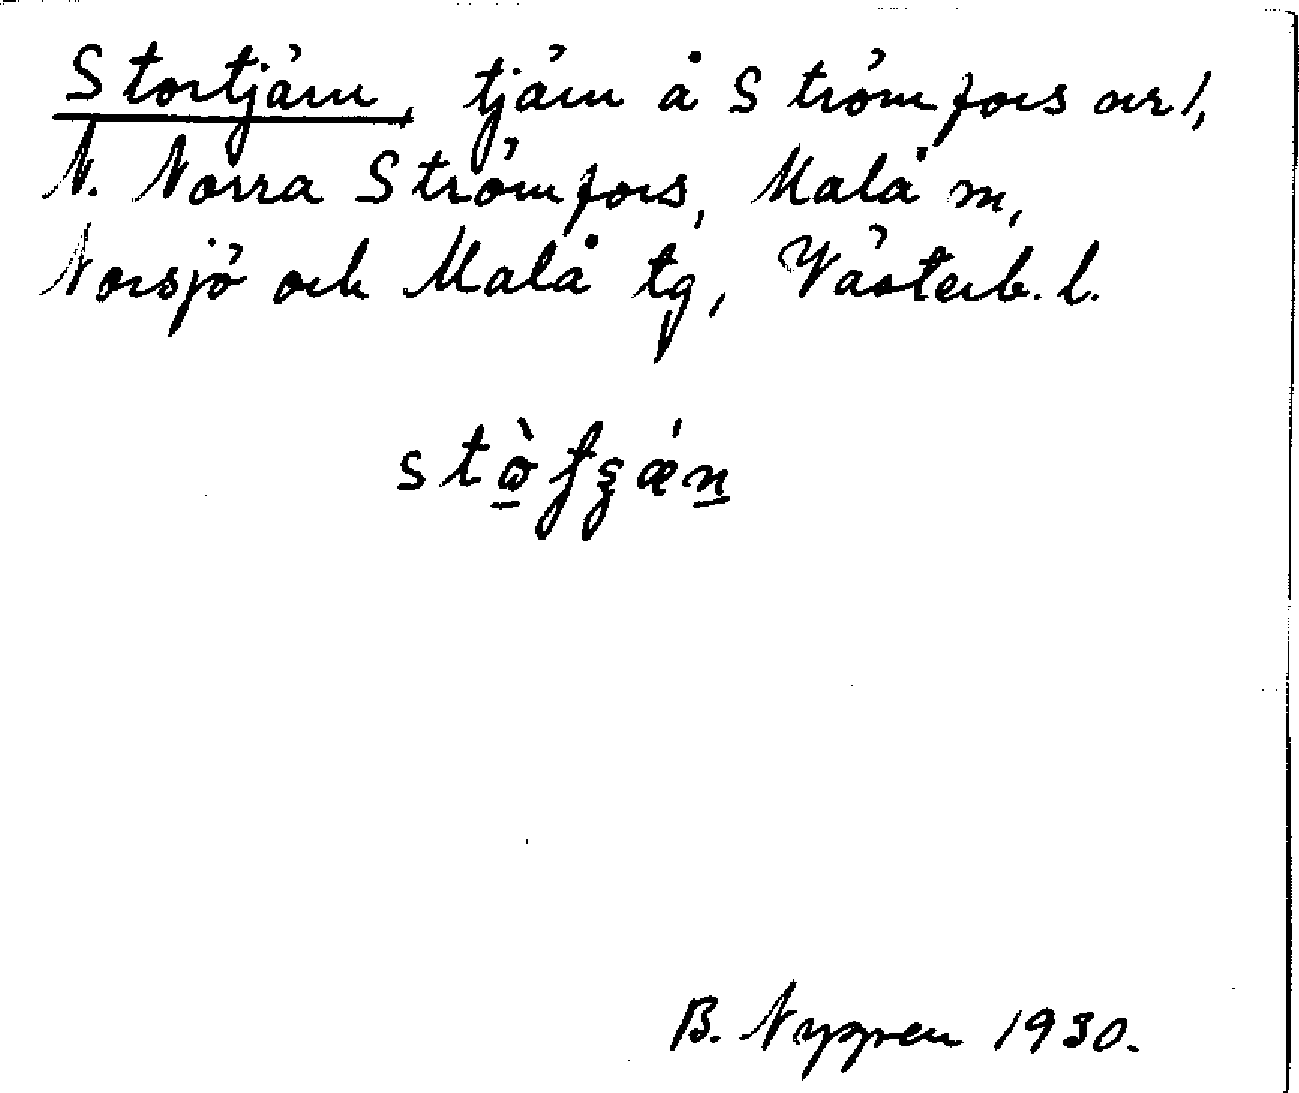 Stortjärn, tjärn å Strömfors nr 1,
N. Norra Strömfors, Malå sn,
Norsjö och Malå tg, Västerb. l.
B. Nygren 1930.